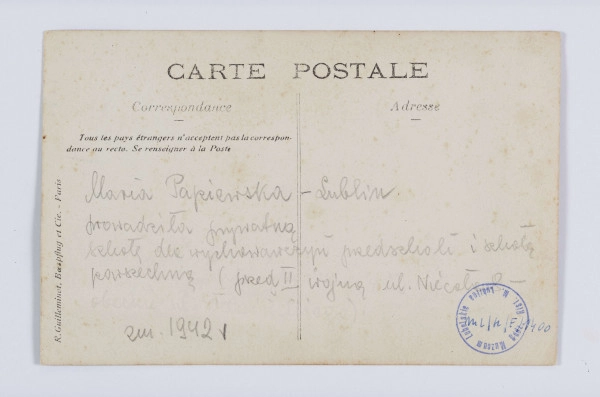 CARTE POSTALE
Correspondance
Adresse
Tous les pays étrangers n'acceptent pas la correspon-
dance au recto. Se renseigner à la Poste
R. Guilleminot, Bœspflug et Cie. - Paris
Maria Papiewska - Lublin.
prowadziła prywatną
szkołę dla wychowawczyń przedszkoli i szkołę
powszechną (przed II wojną ul. Niecała
zm. 1942